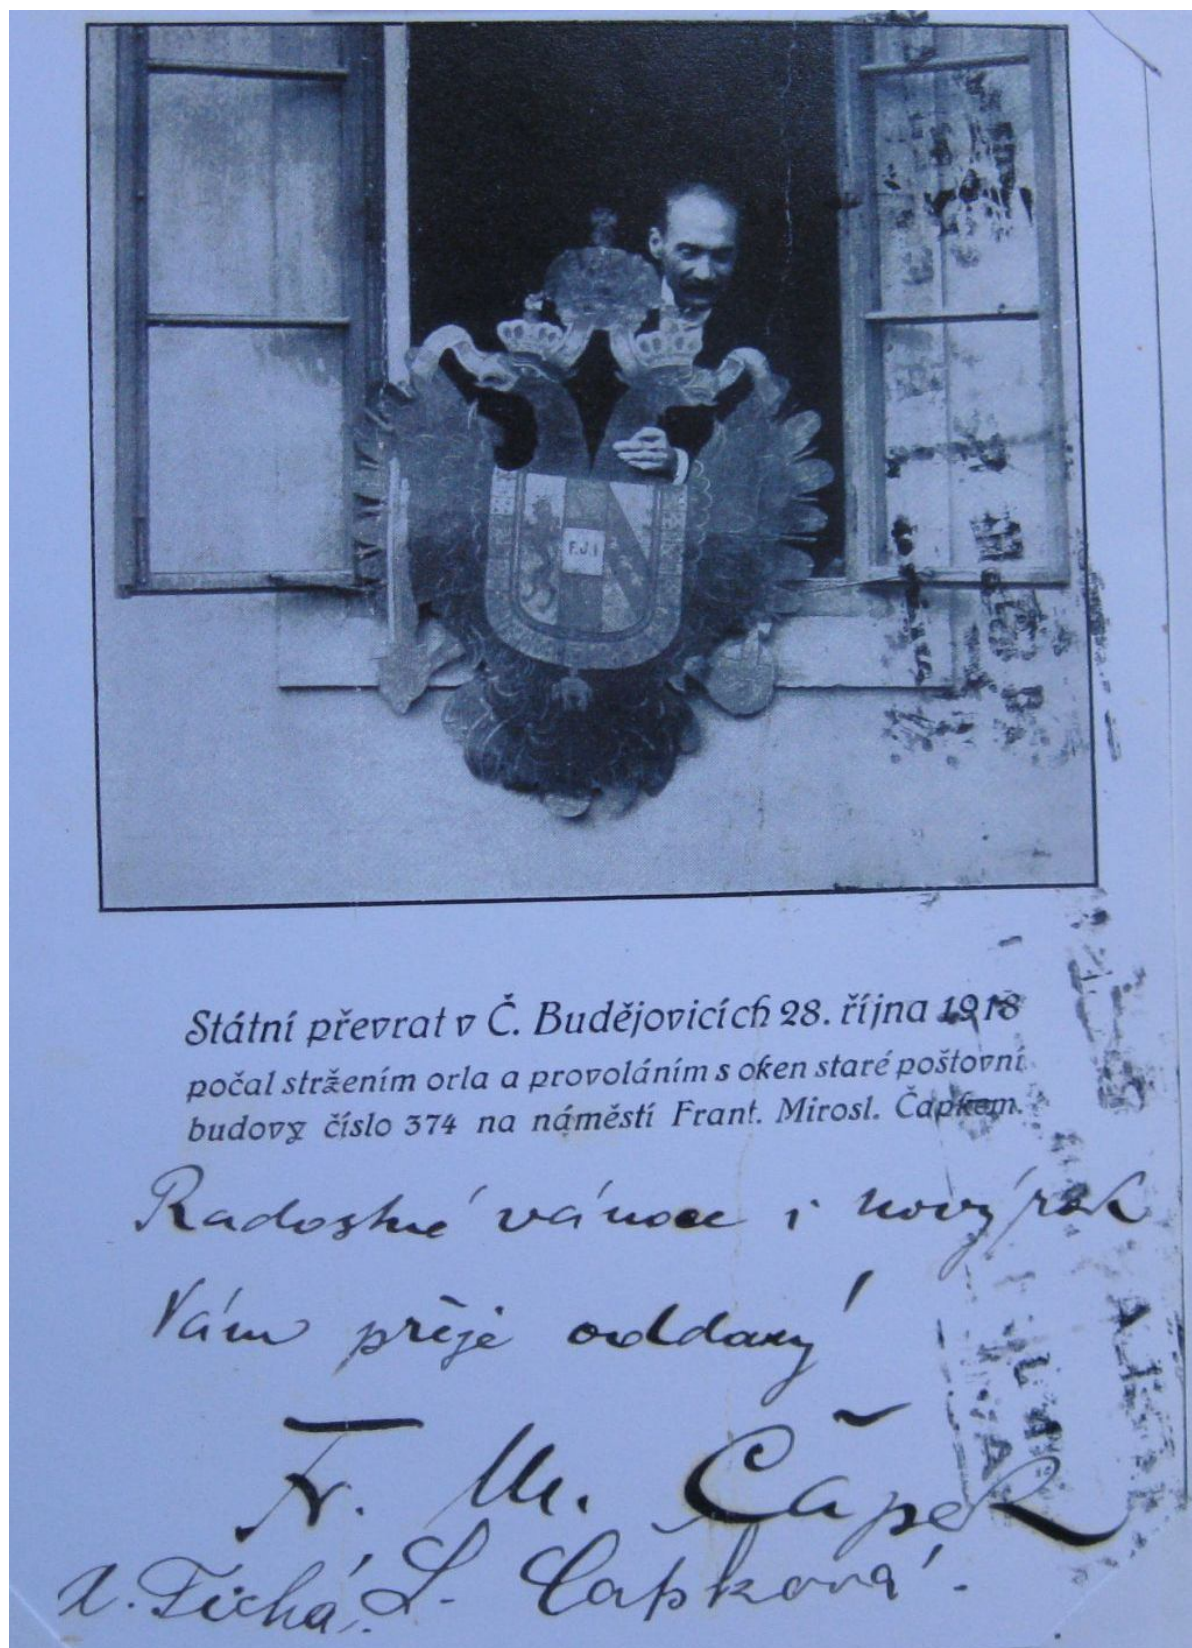 F.J.I
Státní převrat v Č. Budějovicích 28. října 1918
počal stržením orla a provoláním s oken staré poštovní
budovy číslo 374 na náměstí Frant. Mirosl. Čapkem.
Radostné vánoce i nový rok
Vám přeje oddaný
Fr. M. Čapek
Tichá. L. Čapková.